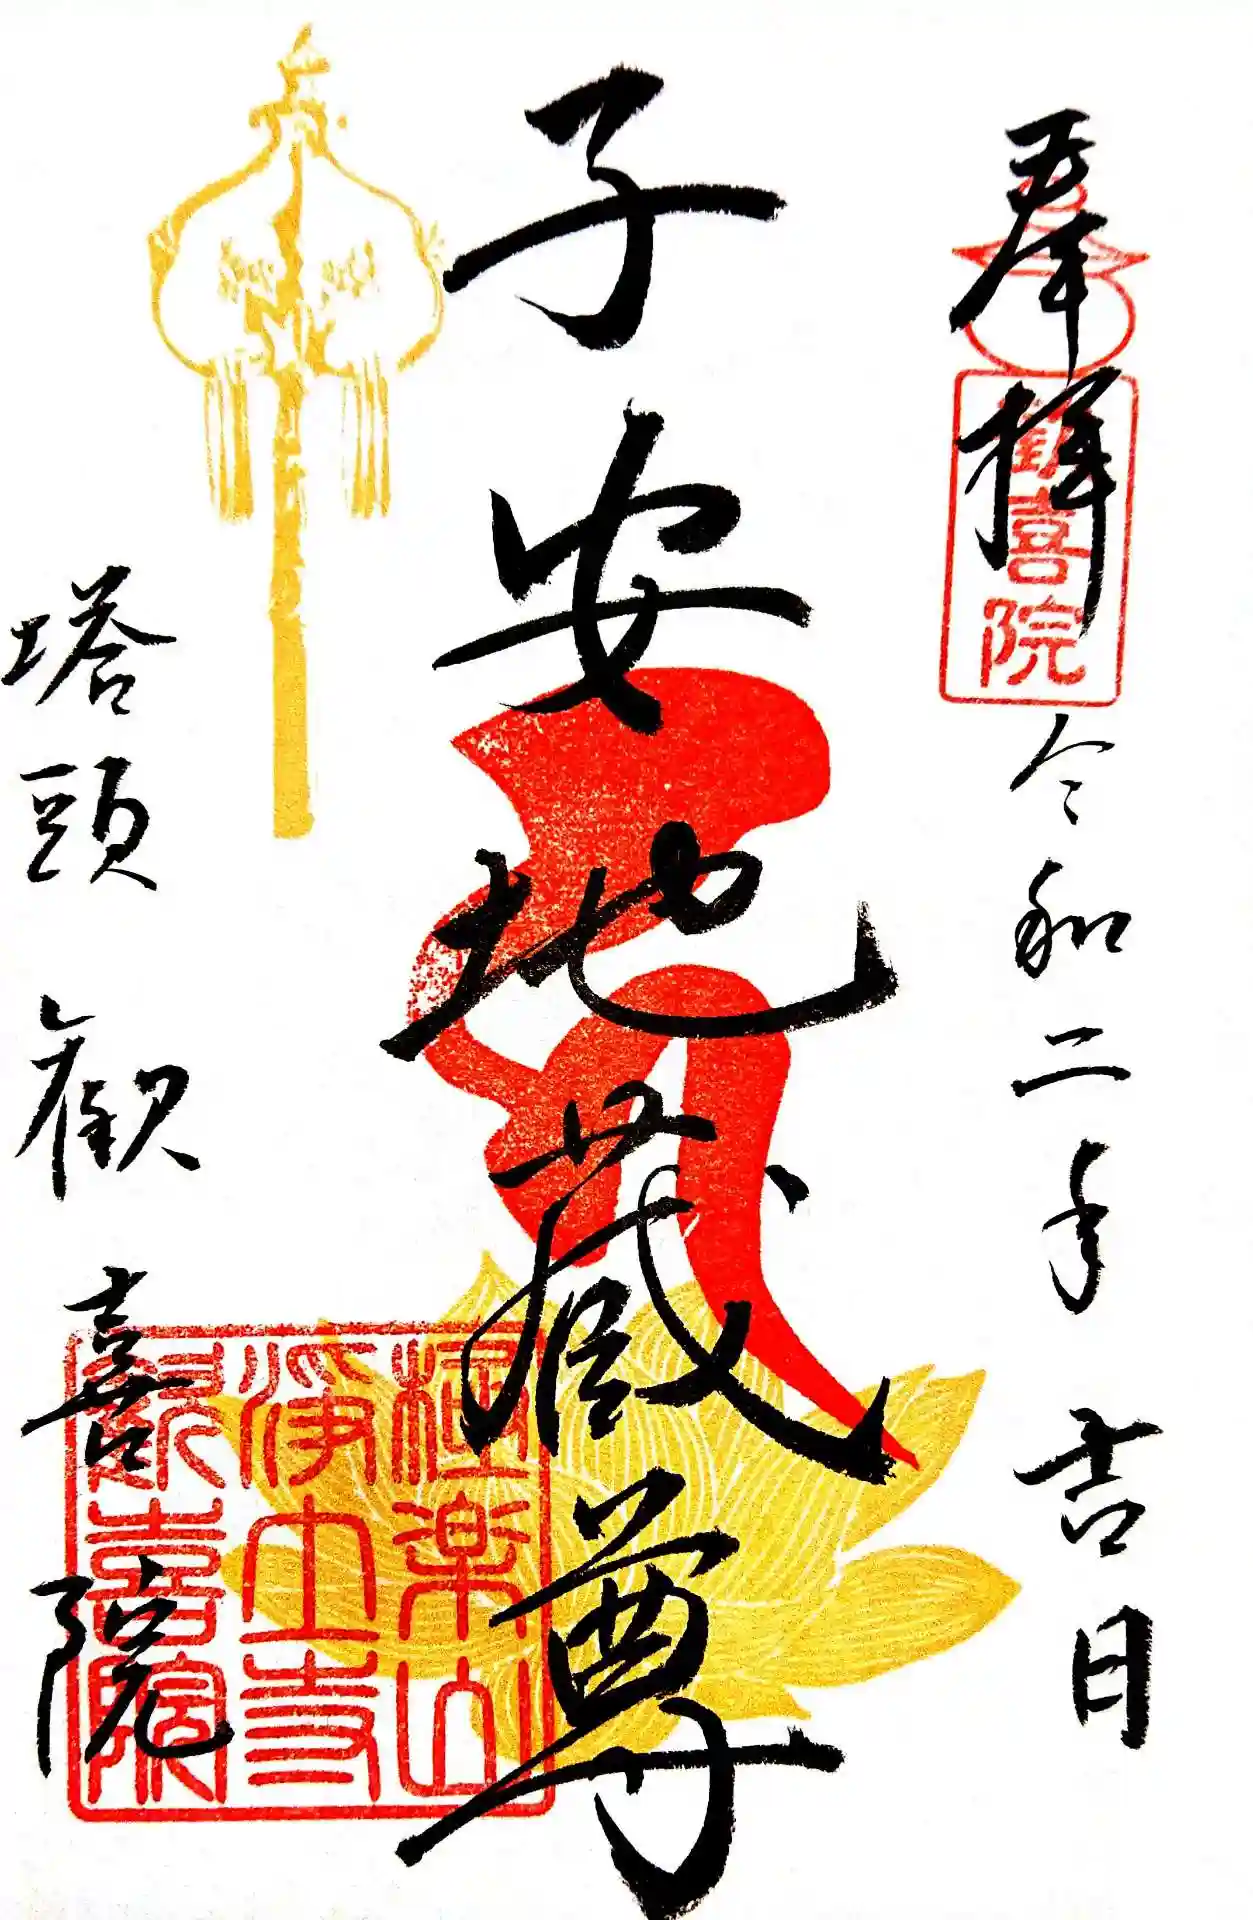 奉拝
歓喜院
令和二年吉日
子安地蔵尊
塔頭 歓喜院
極楽山
浄土寺
歓喜院